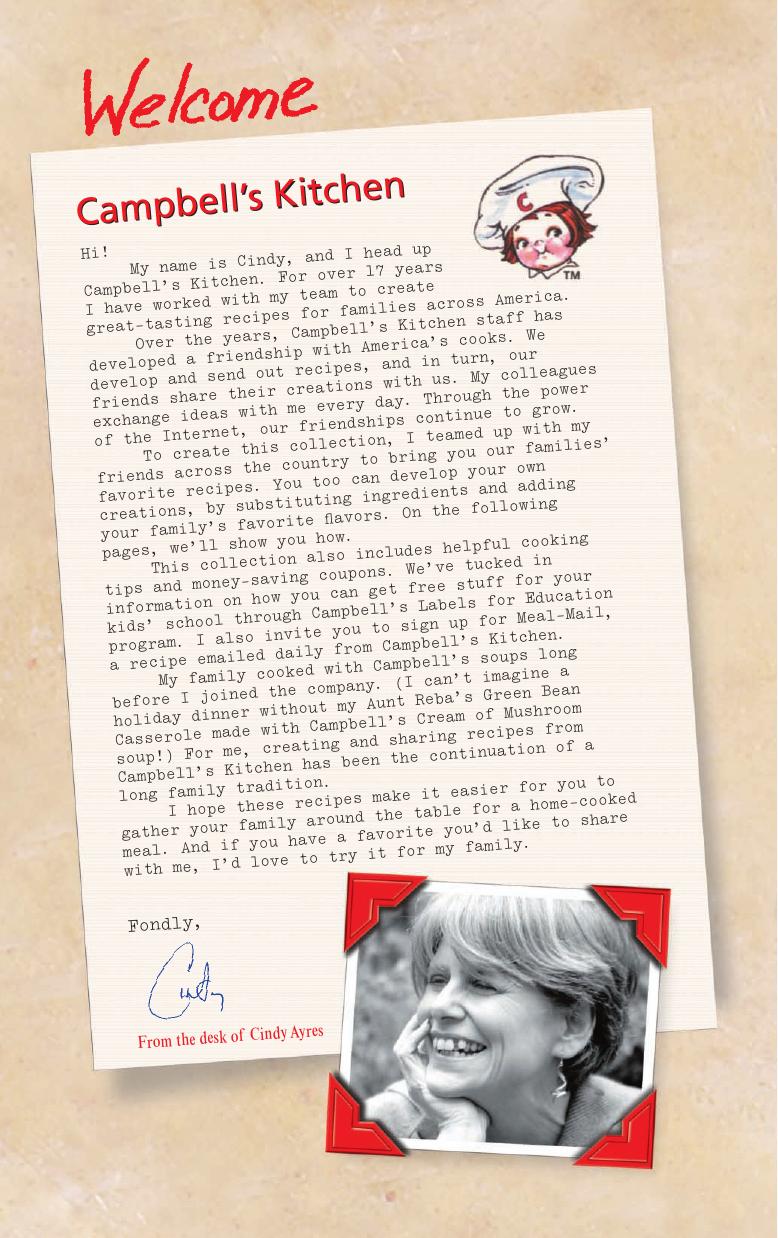 Welcome
Campbell's Kitchen
C
TM
Hi!
My name is Cindy, and I head up
Campbell's Kitchen. For over 17 years
I have worked with my team to create
great-tasting recipes for families across America.
Over the years, Campbell's Kitchen staff has
developed a friendship with America's cooks. We
develop and send out recipes, and in turn, our
friends share their creations with us. My colleagues
exchange ideas with me every day. Through the power
of the Internet, our friendships continue to grow.
To create this collection, I teamed up with my
friends across the country to bring you our families'
favorite recipes. You too can develop your own
creations, by substituting ingredients and adding
your family's favorite flavors. On the following
pages, we'll show you how.
This collection also includes helpful cooking
tips and money-saving coupons. We've tucked in
information on how you can get free stuff for your
kids' school through Campbell's Labels for Education
program. I also invite you to sign up for Meal-Mail,
a recipe emailed daily from Campbell's Kitchen.
My family cooked with Campbell's soups long
before I joined the company. (I can't imagine a
holiday dinner without my Aunt Reba's Green Bean
Casserole made with Campbell's Cream of Mushroom
soup!) For me, creating and sharing recipes from
Campbell's Kitchen has been the continuation of a
long family tradition.
I hope these recipes make it easier for you to
gather your family around the table for a home-cooked
meal. And if you have a favorite you'd like to share
with me, I'd love to try it for my family.
Fondly,
Cindy
From the desk of Cindy Ayres